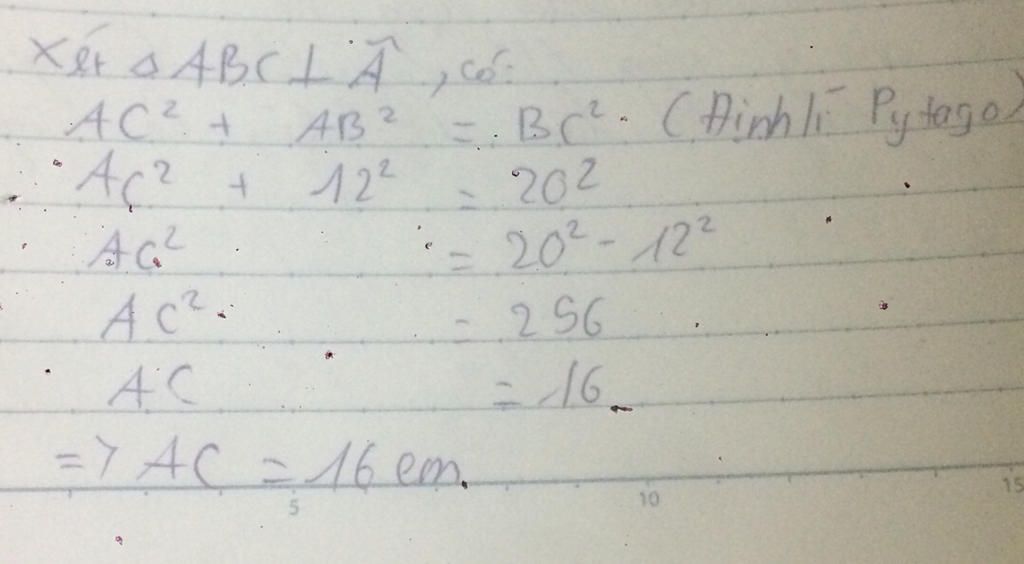 Xét △ABC ⊥ Â, có:
AC² + AB² = BC² (Định lí Pytago)
AC² + 12² = 20²
AC² = 20² - 12²
AC² = 256
AC = 16
=> AC = 16 cm.
5 10 15